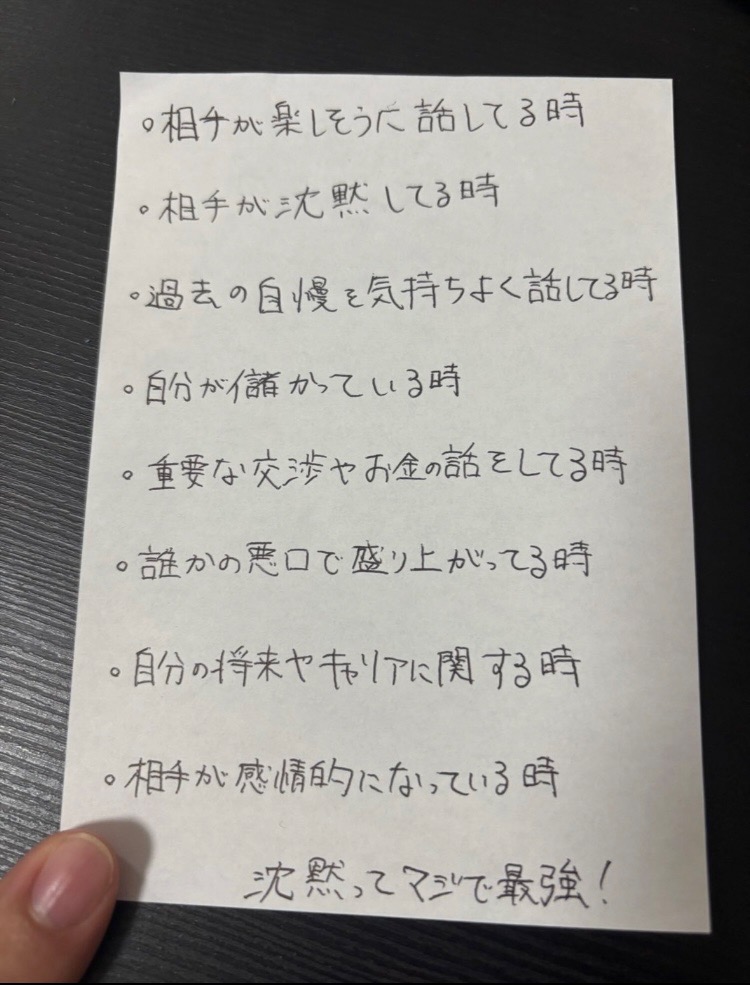 。相手が楽しそうに話してる時
。相手が沈黙してる時
。過去の自慢を気持ちよく話してる時
。自分が儲かっている時
。重要な交渉やお金の話をしてる時
。誰かの悪口で盛り上がってる時
。自分の将来やキャリアに関する時
。相手が感情的になっている時
沈黙ってマジで最強!